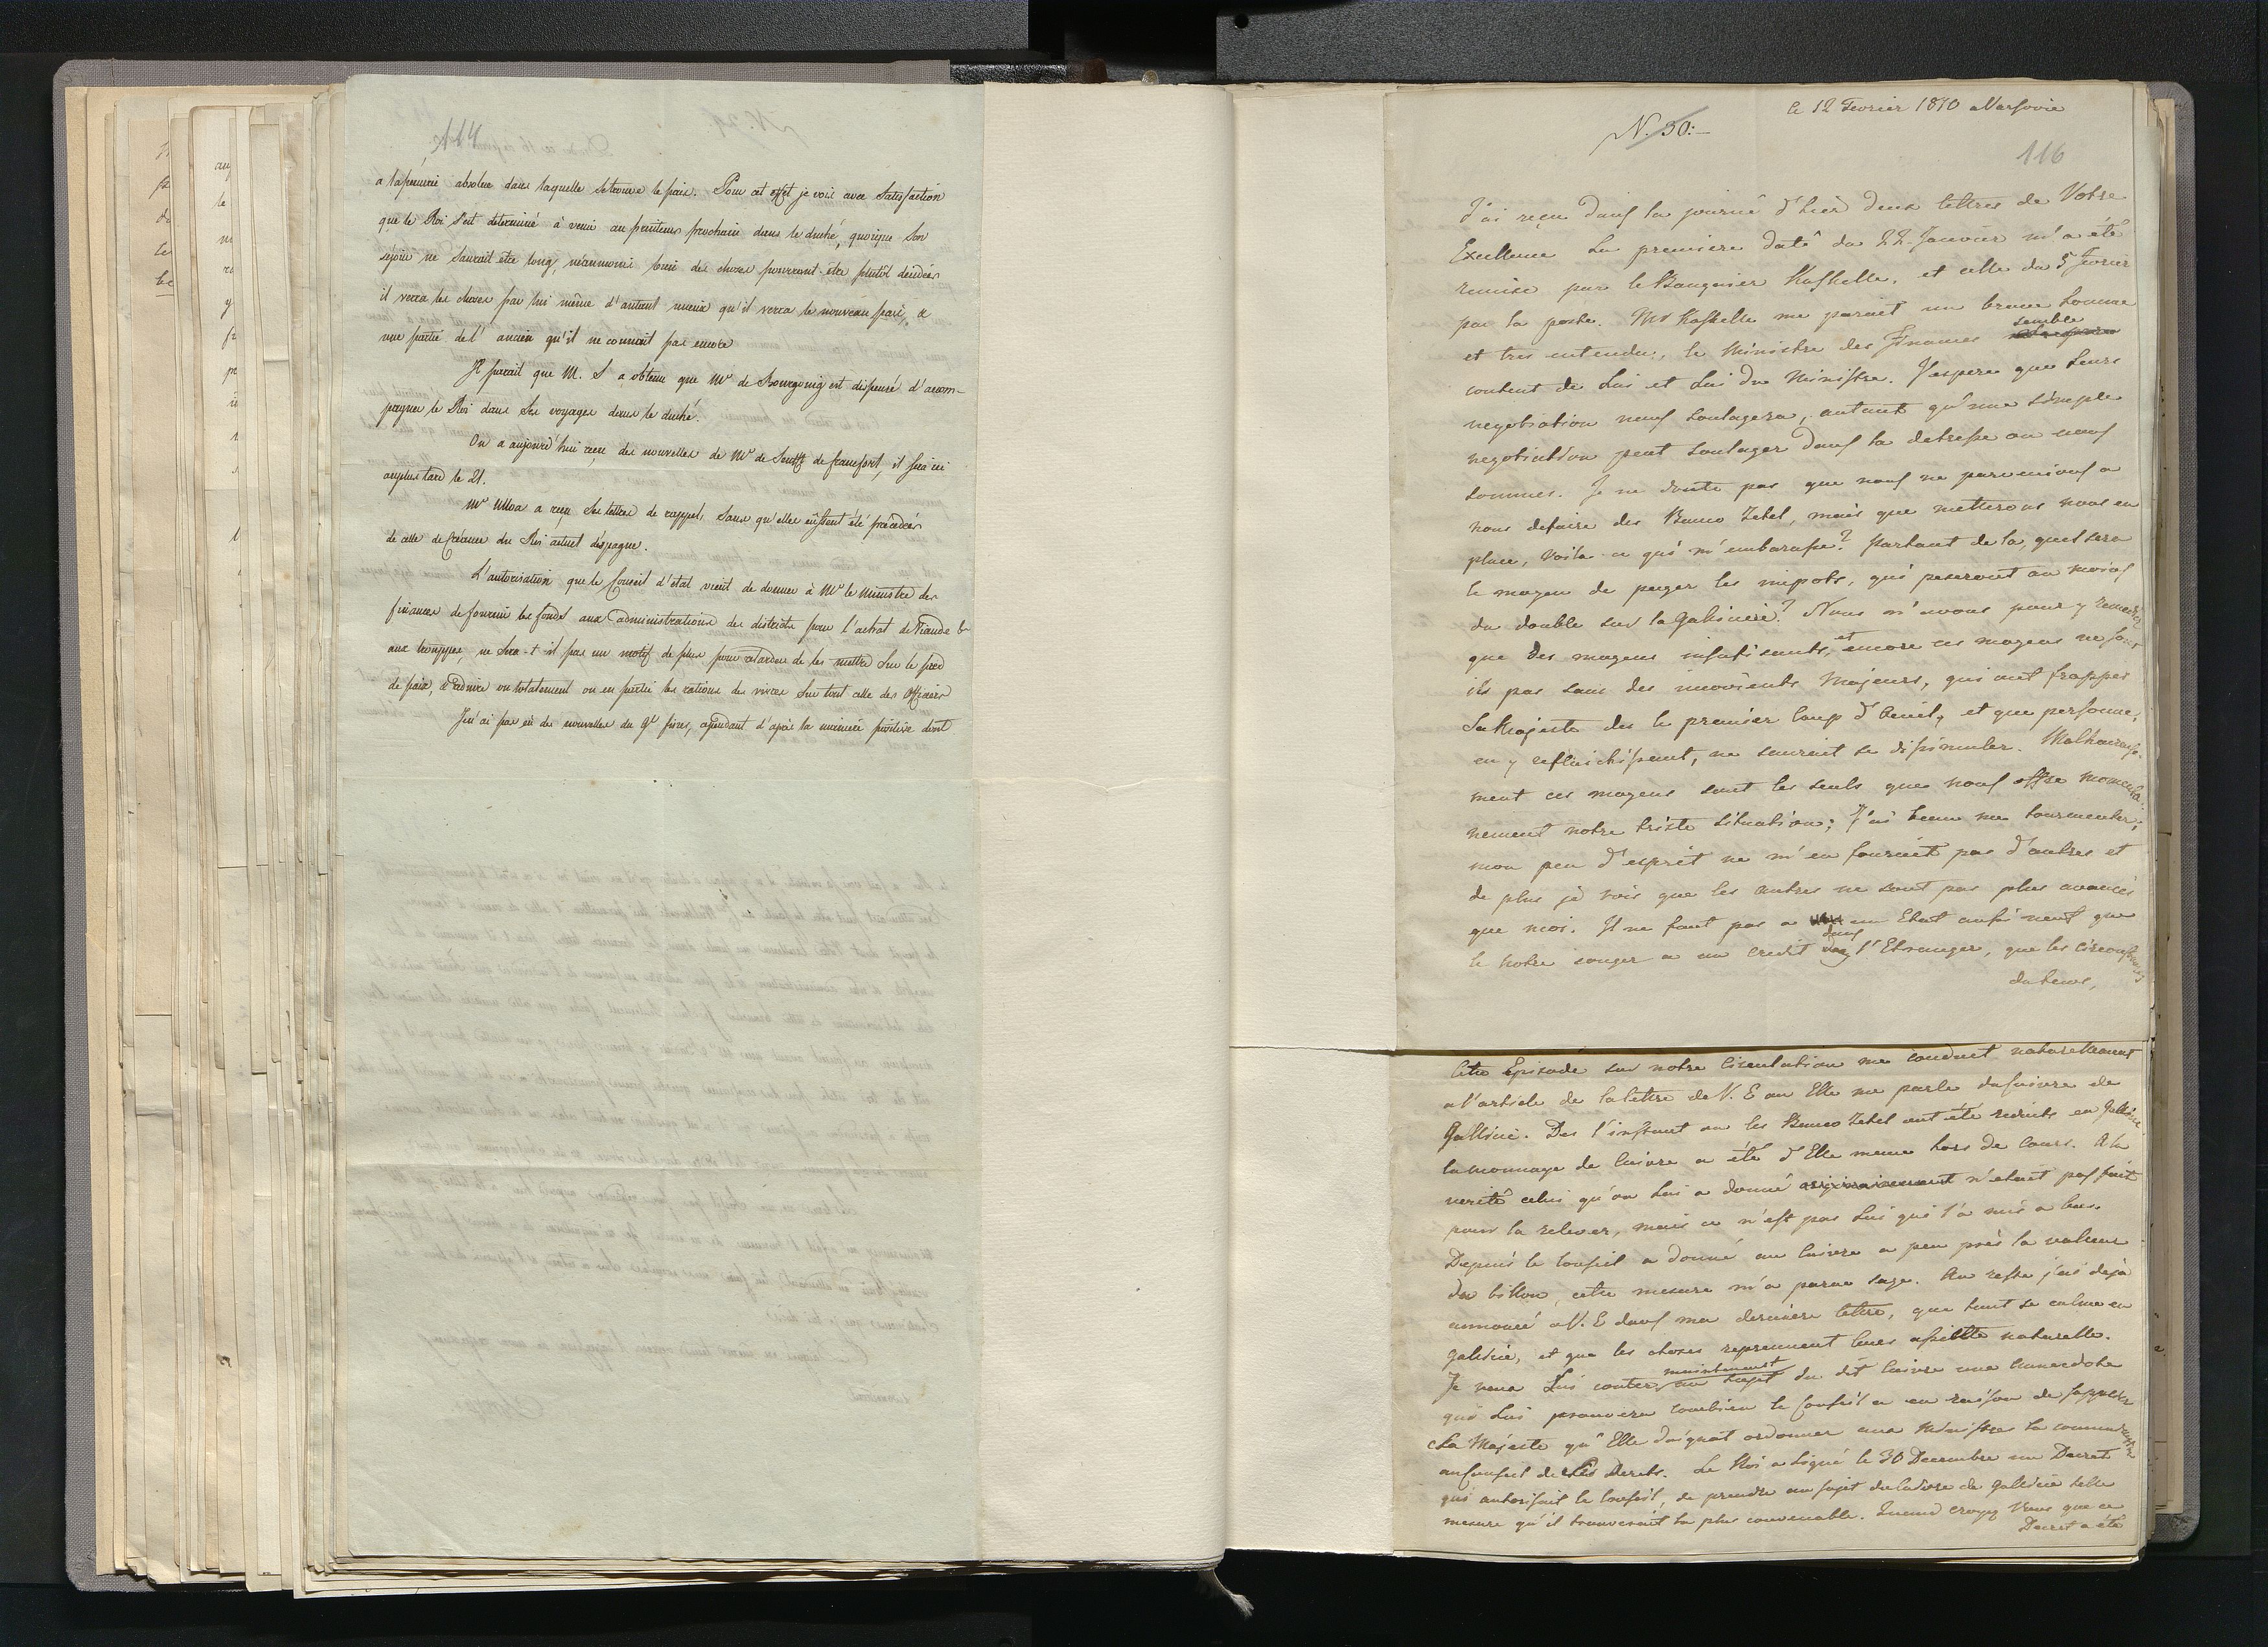 114
a la pénurie absolue dans laquelle se trouve le païs. Pour cet effet je vois avec Satisfaction
que le Roi s'est determiné à venir au printems prochain dans le duché, quoique Son
sejour ne Saurait etre long, néanmoins bien des choses pourront être plutôt decidées
il verra les choses par lui même d'autant mieux qu'il verra le nouveau païs, &
une partie de l'ancien qu'il ne connoit pas encore
Il parait que M. S a obtenu que Mr de Bourgoing est dispensé d'accom-
pagner le Roi dans Ses voyages dans le duché.
On a aujourd'hui reçu des nouvelles de Mr de Senfft de francfort, il sera ici
au plus tard le 21.
Mr Ulloa a reçu Ses lettres de rappel, Sans qu'elles eussent été précédées
de celle de Créance du Roi actuel d'Espagne.
L'autorisation que le Conseil d'etat vient de donner à Mr le Ministre des
finances de fournir les fonds aux administrations des districts pour l'achat de Viande &
aux trouppes, ne Sera-t-il pas un motif de plus pour retarder de les mettre Sur le pied
de paix, & reduire ou totalement ou en partie les rations des vivres Sur tout celle des Officiers
Je n'ai pas eû des nouvelles du Gl fiszer, cependant d'après la manière positive dont
le 12 Fevrier 1810 a Varsovie
N. 30:-
116
J'ai reçu dans la journé d'hier deux lettres de Votre
Excellence La premiere daté du 22 Janvier m'a été
remise par le Banquier Kaskelle, et celle du 5 Fevrier
par la poste. Mr Kaskelle me parait un brave homme
et tres entendu, le Ministre des Finances semble
content de Lui et Lui du Ministre. J'espere que Leurs
negotiation nous soulagera, autant qu'une simple
negotiation peut soulager dans la detresse ou nous
sommes. Je ne doute pas que nous ne parvenions a
nous defaire des Banco Zetel, mais que metterons nous en
place, voila ce qui m'embarasse? Partant de la, quel sera
le moyen de payer les impots, qui peseront au moins
du double sur la Galicie? Nous n'avons pour y remedier
que des moyens insufisants, et encore ces moyens ne sont
ils pas sans des inconvients Majeurs, qui ont frappés
Sa Majesté des le premier Coup d'Oeuil, et que personne,
en y reflechissant, ne saurait se dissimuler. Malheureuse-
ment ces moyens sont les seuls que nous offre momenta-
nement notre triste situation; J'ai beau me tourmenter,
mon peu d'esprit ne m'en fournit pas d'autres et
de plus je vois que les autres ne sont pas plus avancés
que moi. Il ne faut pas a un Etat aussi neuf que
le notre songer a un credit dans l'Etranger, que les circonstances
du tems,
Cette Episode sur notre Circulation me conduit naturellement
a l'article de la lettre de V. E ou Elle me parle du Cuivre de
Gallicie. Des l'instant ou les Banco Zetel ont été reduits en Gallicie
la monnaye de Cuivre a été d'Elle meme hors de Cours. A la
verité celui qu'on lui a donné originairement n'etait pas fait
pour la relever, mais ce n'est pas Lui qui l'a mis a bas.
Depuis le Conseil a donné au Cuivre a peu près la valeur
du billon, cette mesure m'a parue sage. Au reste j'ai deja
annoncé a V. E dans ma derniere lettre, que tout se calme en
galicie, et que les choses reprennent leur assiette naturelle.
Je veux Lui conter maintenant au sujet du dit Cuivre une Annecdote
qui Lui prouvera combien le Conseil a eu raison de supplier
Sa Majeste qu'Elle daignat ordonner aux Ministres la communication
au Conseil de Ses Decrets. Le Roi a signé le 30 Decembre un Decret
qui autorisait le Conseil, de prendre au sujet du Cuivre de Gallicie telle
mesure qu'il trouverait la plus convenable. Quand croyez Vous que ce
Decret a été